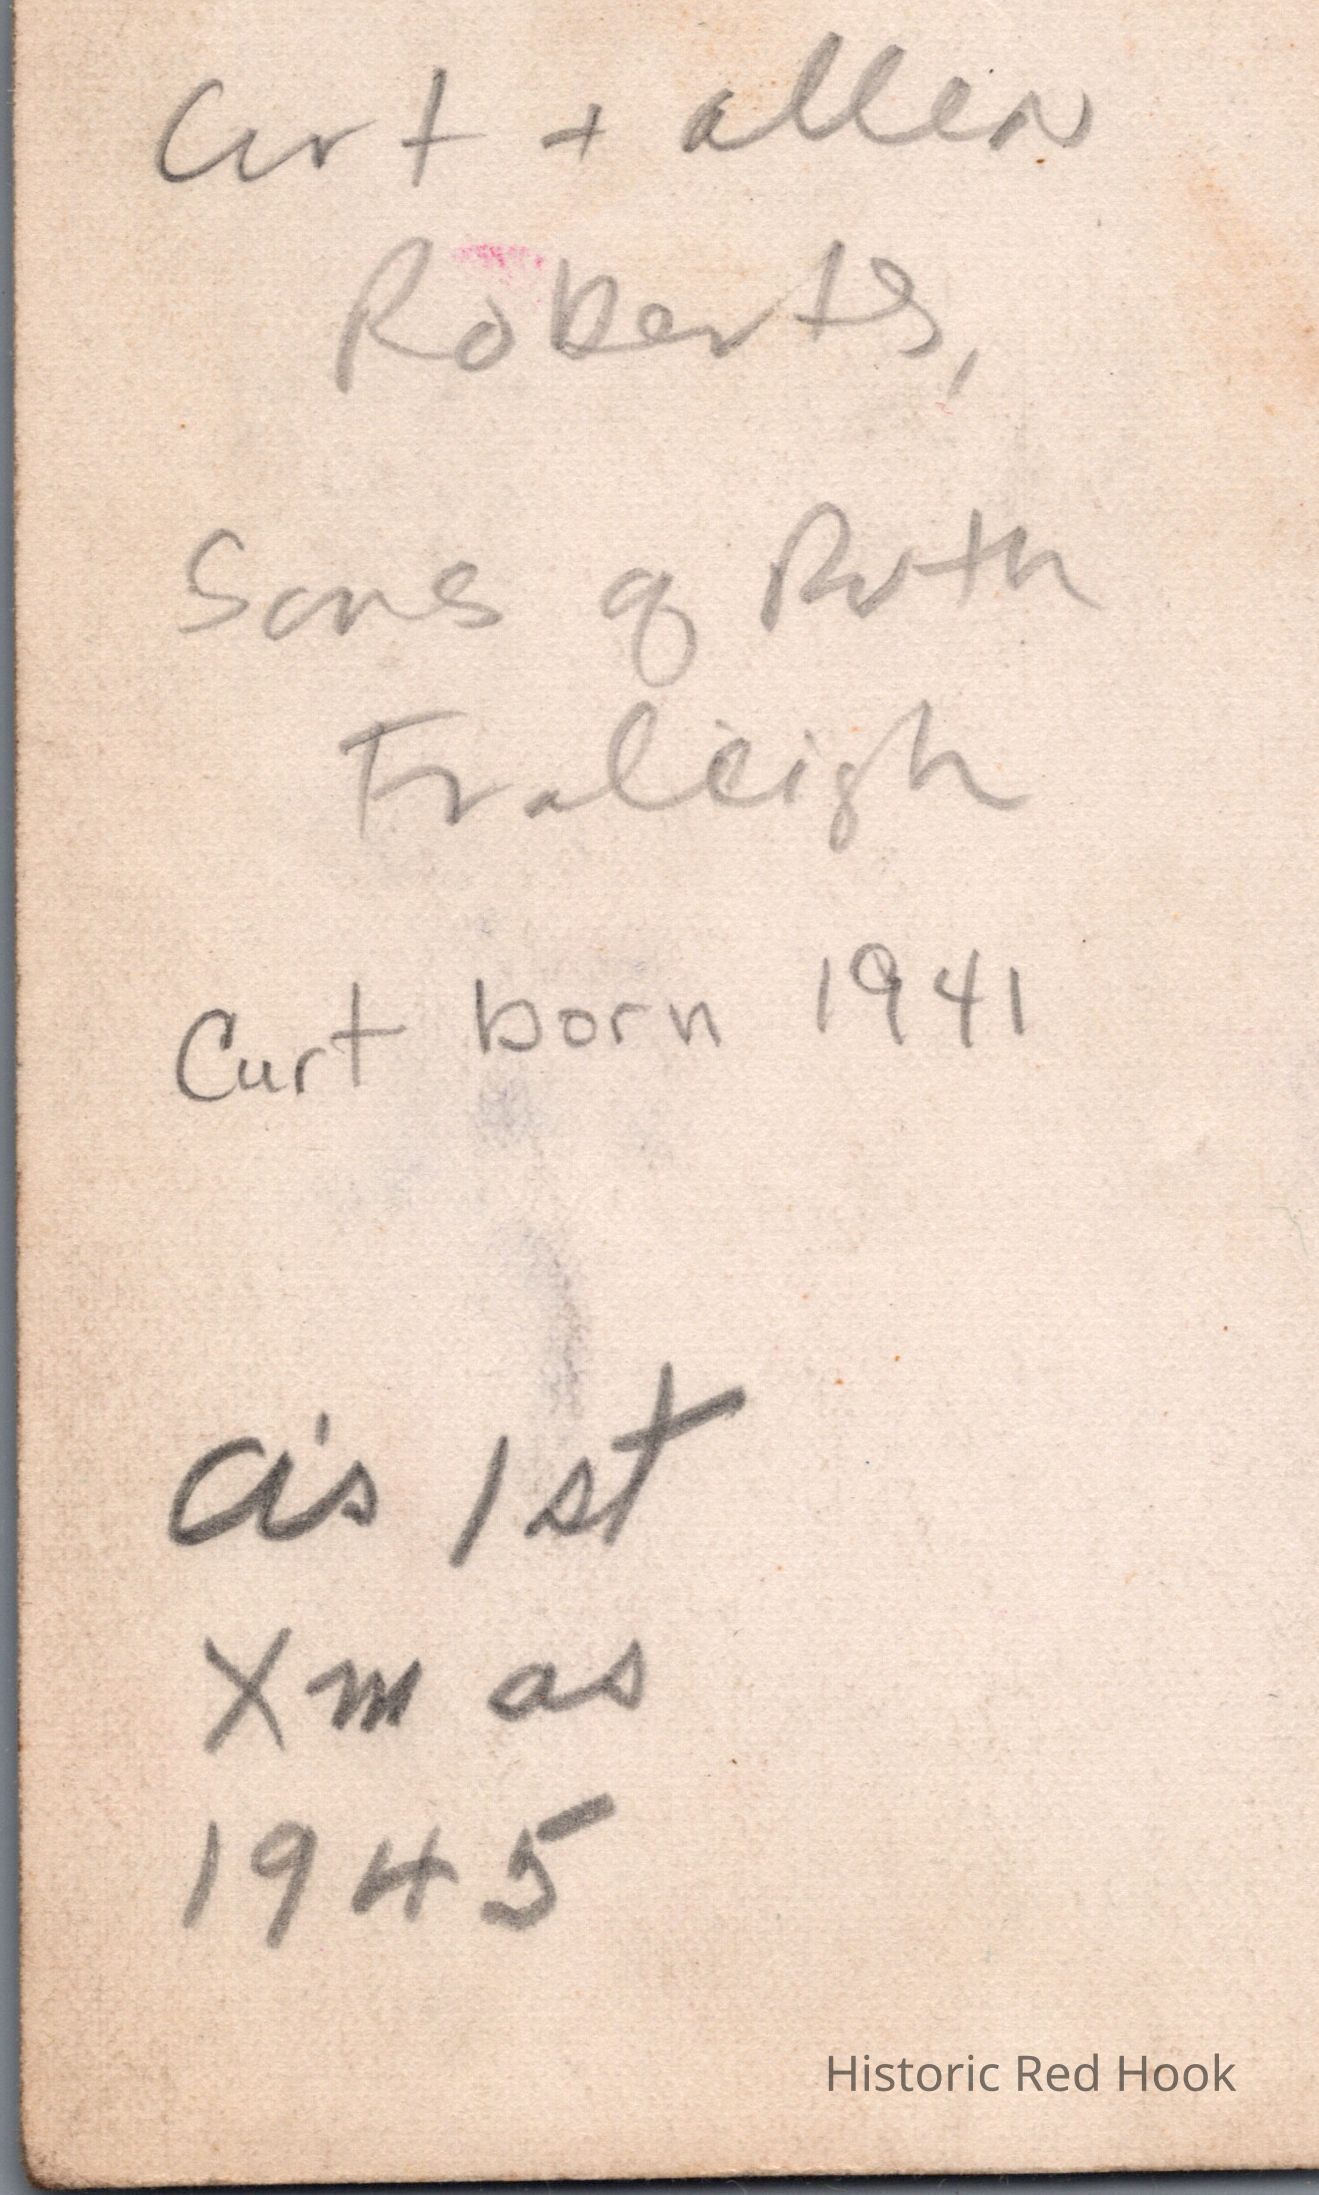 Curt + allen
Roberts,
Sons of Ruth
Fraleigh
Curt born 1941
a's 1st
Xmas
1945
Historic Red Hook